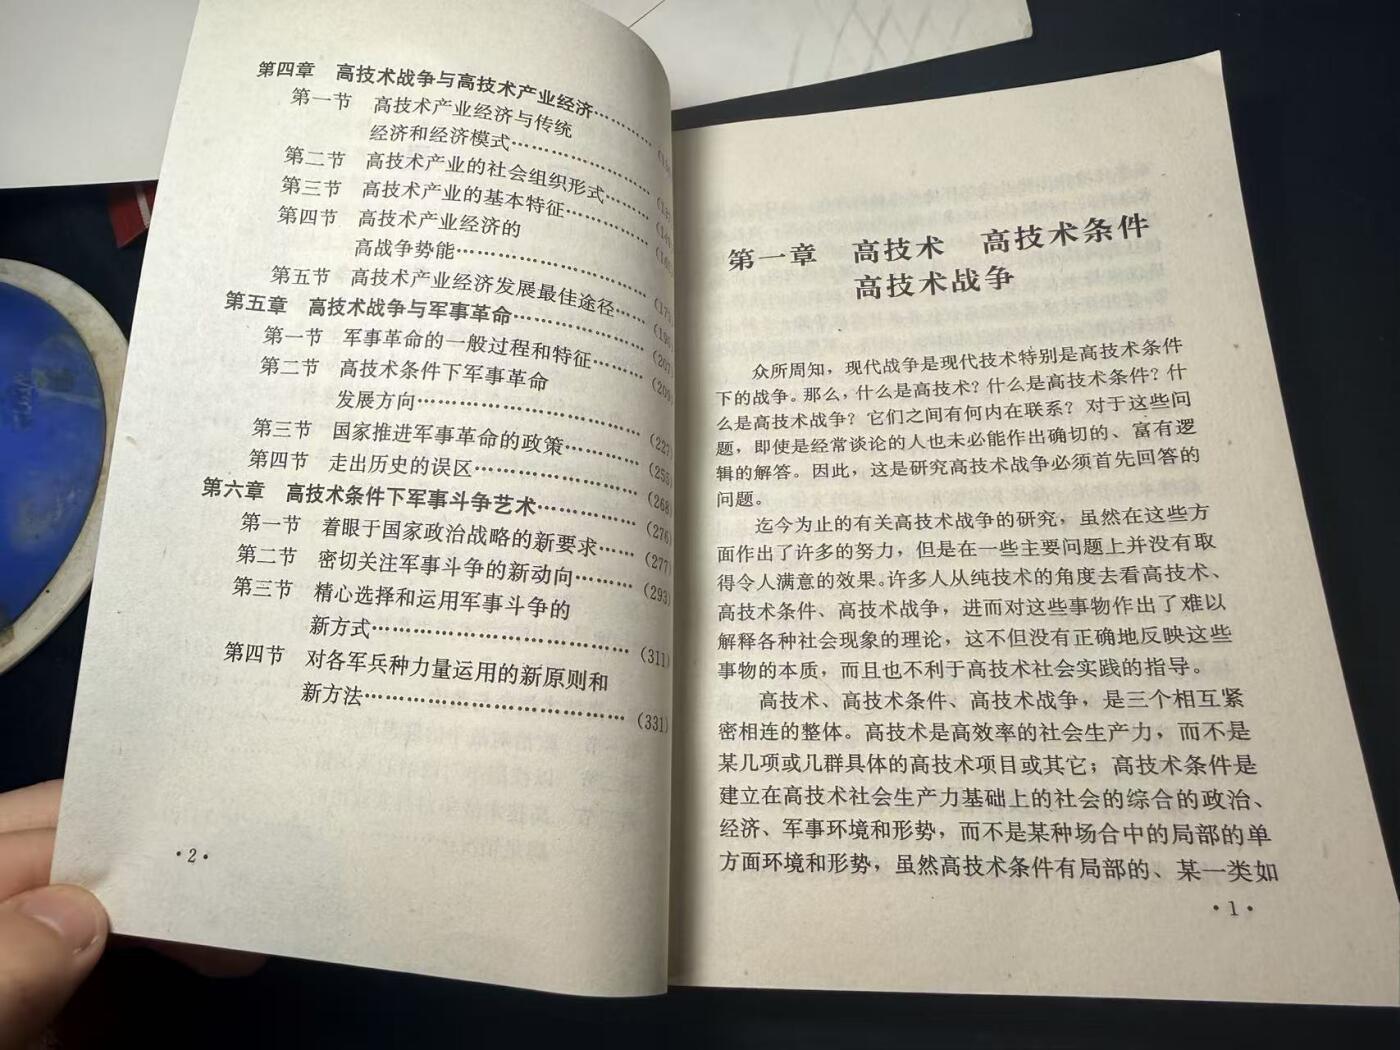 第四章 高技术战争与高技术产业经济…………
第一节 高技术产业经济与传统
经济和经济模式……………
第二节 高技术产业的社会组织形式………
第三节 高技术产业的基本特征…………
第四节 高技术产业经济的
高战争势能………………
第五节 高技术产业经济发展最佳途径……
第五章 高技术战争与军事革命……………
第一节 军事革命的一般过程和特征………
第二节 高技术条件下军事革命
发展方向…………………(227)
第三节 国家推进军事革命的政策…………(255)
第四节 走出历史的误区……………(268)
第六章 高技术条件下军事斗争艺术…………(276)
第一节 着眼于国家政治战略的新要求……(277)
第二节 密切关注军事斗争的新动向………(293)
第三节 精心选择和运用军事斗争的
新方式…………………………(311)
第四节 对各军兵种力量运用的新原则和
新方法…………………………(331)
·2·
第一章 高技术 高技术条件
高技术战争
众所周知，现代战争是现代技术特别是高技术条件
下的战争。那么，什么是高技术？什么是高技术条件？什
么是高技术战争？它们之间有何内在联系？对于这些问
题，即使是经常谈论的人也未必能作出确切的、富有逻
辑的解答。因此，这是研究高技术战争必须首先回答的
问题。
迄今为止的有关高技术战争的研究，虽然在这些方
面作出了许多的努力，但是在一些主要问题上并没有取
得令人满意的效果。许多人从纯技术的角度去看高技术、
高技术条件、高技术战争，进而对这些事物作出了难以
解释各种社会现象的理论，这不但没有正确地反映这些
事物的本质，而且也不利于高技术社会实践的指导。
高技术、高技术条件、高技术战争，是三个相互紧
密相连的整体。高技术是高效率的社会生产力，而不是
某几项或几群具体的高技术项目或其它；高技术条件是
建立在高技术社会生产力基础上的社会的综合的政治、
经济、军事环境和形势，而不是某种场合中的局部的单
方面环境和形势，虽然高技术条件有局部的、某一类如
·1·